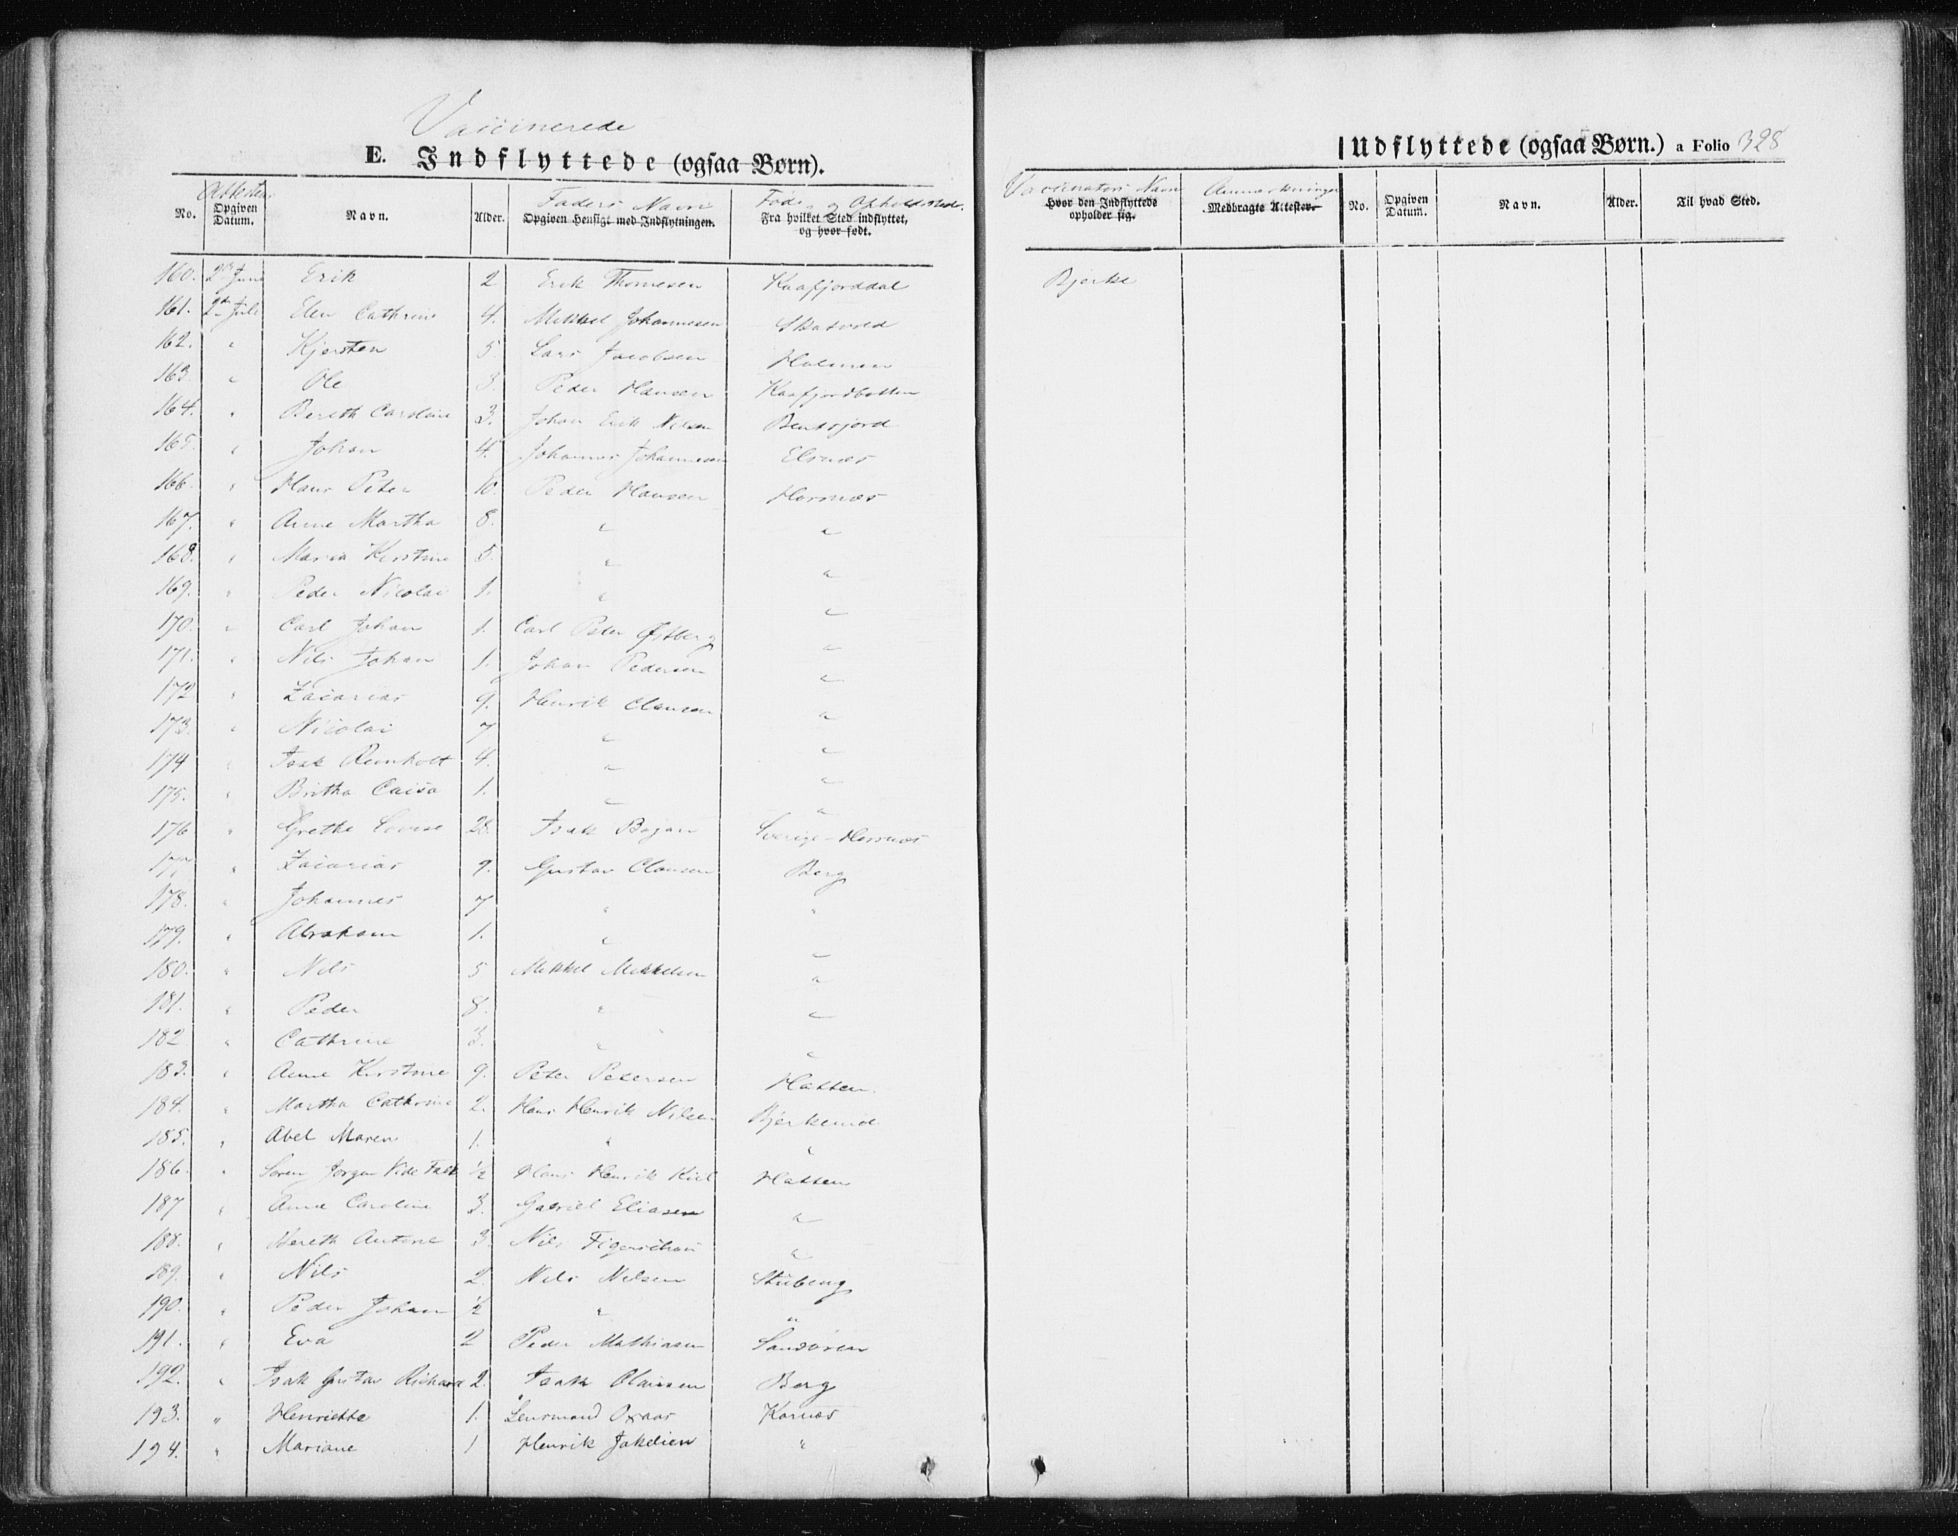 Vaccinerede
E. Indflyttede (ogsaa Børn).
Indflyttede (ogsaa Børn.) a Folio 328
No. Attestens Opgiven Datum. Navn. Alder. Faders Navn Opgiven Hensigt med Indflytningen. Føde- og Opholdssted. Fra hvilket Sted indflyttet, og hvor født.
Vaccinators Navn Hvor den Indflyttede opholder sig. Anmærkninger Medbragte Attester. No. Opgiven Datum. Navn. Alder. Til hvad Sted.
160. 2den Juni Erik 2 Erik Thomesen Kaafjorddal Bjerke
161. 2den Juli Elen Cathrine 4. Mikkel Johannesen Skatvold
162. " Kjersten 5. Lars Jacobsen Holmen
163 " Ole 3. Peder Hansen Kaafjordbotten
164. " Bereth Caroline 3. Johan Erik Nilsen Bentsjord
165. " Johan 4. Johannes Johannesen Elsnæs
166. " Hans Peter 10. Peder Hansen Hersnæs
167. " Anne Martha 8. " "
168. " Maria Kirstine 5. " "
169. " Peder Nicolai 1. " "
170. " Carl Johan 1. Carl Peter Østberg "
171. " Nils Johan 1. Johan Pedersen "
172 " Zacarias 9. Henrik Clausen "
173. " Nicolai 7 " "
174 " Isak Reinholt 4. " "
175. " Britha Caisa 1. " "
176 " Grethe Lovise 28. Isak Bajan Sverige-Hersnæs
177 " Zacarias 9. Gustav Clausen Berg
178. " Johannes 7 " "
179. " Abraham 1. " "
180. " Nils 5 Mikkel Mikkelsen "
181. " Peder 8. " "
182 " Cathrine 3. " "
183. " Anne Kirstine 9. Peter Petersen Hatten.
184. " Martha Cathrine 2. Hans Henrik Nilsen
185. " Abel Maren 1. " "
186. " Søren Jørgen Falk ½ Hans Henrik Kiil Hatten
187 " Anne Caroline 3. Gabriel Eliasen "
188. " Bereth Antone 3. Nils Figenschou "
189. " Nils 2. Nils Nilsen Stubeng
190. " Peder Johan ½ " "
191. " Eva 2 Peder Mathiasen Sandøren
192. " Isak Gustav Richard 2. Isak Clausen Berg
193. " Henriette 1. Lensmand Oxaas Kornæs
194. " Mariane 1 Henrik Jakelien "